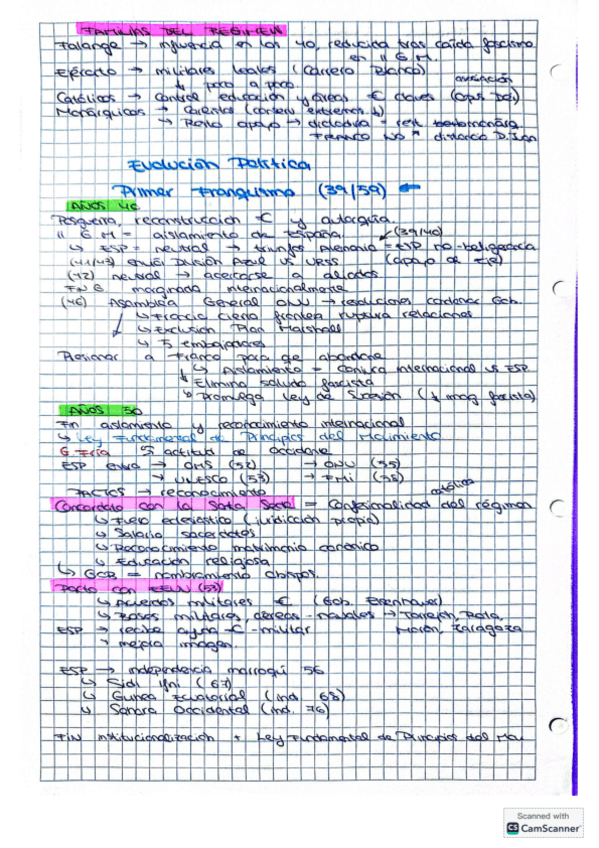 FAMILIAS DEL RÉGIMEN
Falange → influencia en los 40, reducida tras caída fascismo
en II G.M.
Ejército → militares leales (Carrero Blanco)
↓ poco a poco
Católicos → control educación y áreas € claves (Opus Dei)
Monárquicos → Carlistas
→ apoyo → dictadura = rest.
FRANCO NO distancia D. Juan
Evolución Política
Primer Franquismo (39/59) ←
AÑOS 40
Posguerra, reconstrucción € y autarquía.
II G M = aislamiento de España. (39/40)
↳ ESP = neutral → triunfos Alemania = ESP no-beligerancia
(41/43) envió División Azul vs URSS (apoyo al Eje)
(42) neutral → acercarse a aliados
FIN G marginada internacionalmente
(46) Asamblea General ONU → resoluciones condenar Gob.
↳ Francia cierra frontera ruptura relaciones
↳ Exclusión Plan Marshall
↳ 5 embajadores
Presionar a Franco para que abandone
↳ Aislamiento = Conjura internacional vs ESP
↓ Elimina saludo fascista
↳ Promulga Ley de Sucesión (↓ imag fascista)
AÑOS 50
Fin aislamiento y reconocimiento internacional
↳ Ley Fundamental de Principios del Movimiento
G Fría actitud de occidente
ESP entra → OMS (52) → ONU (55)
→ UNESCO (53) → FMI (58)
PACTOS → reconocimiento
católica
Concordato con la Santa Sede = Confesionalidad del régimen
↳ Fuero eclesiástico (juridicción propia)
↳ Salario sacerdotes
↳ Reconocimiento matrimonio canónico
↳ Educación religiosa
↳ GOB = nombramiento obispos.
Pacto con EEUU (53)
↳ Acuerdos militares € (Gob. Eisenhower)
↳ Bases militares, aéreas-navales → Torrejón, Rota,
ESP → recibe ayuda €-militar Morón, Zaragoza
↳ mejora imagen.
ESP → independencia marroquí 56
↳ Sidi Ifni (67)
↳ Guinea Ecuatorial (ind. 68)
↳ Sahara Occidental (ind. 76)
FIN institucionalización + Ley Fundamental de Principios del Mov.
Scanned with
CS CamScanner